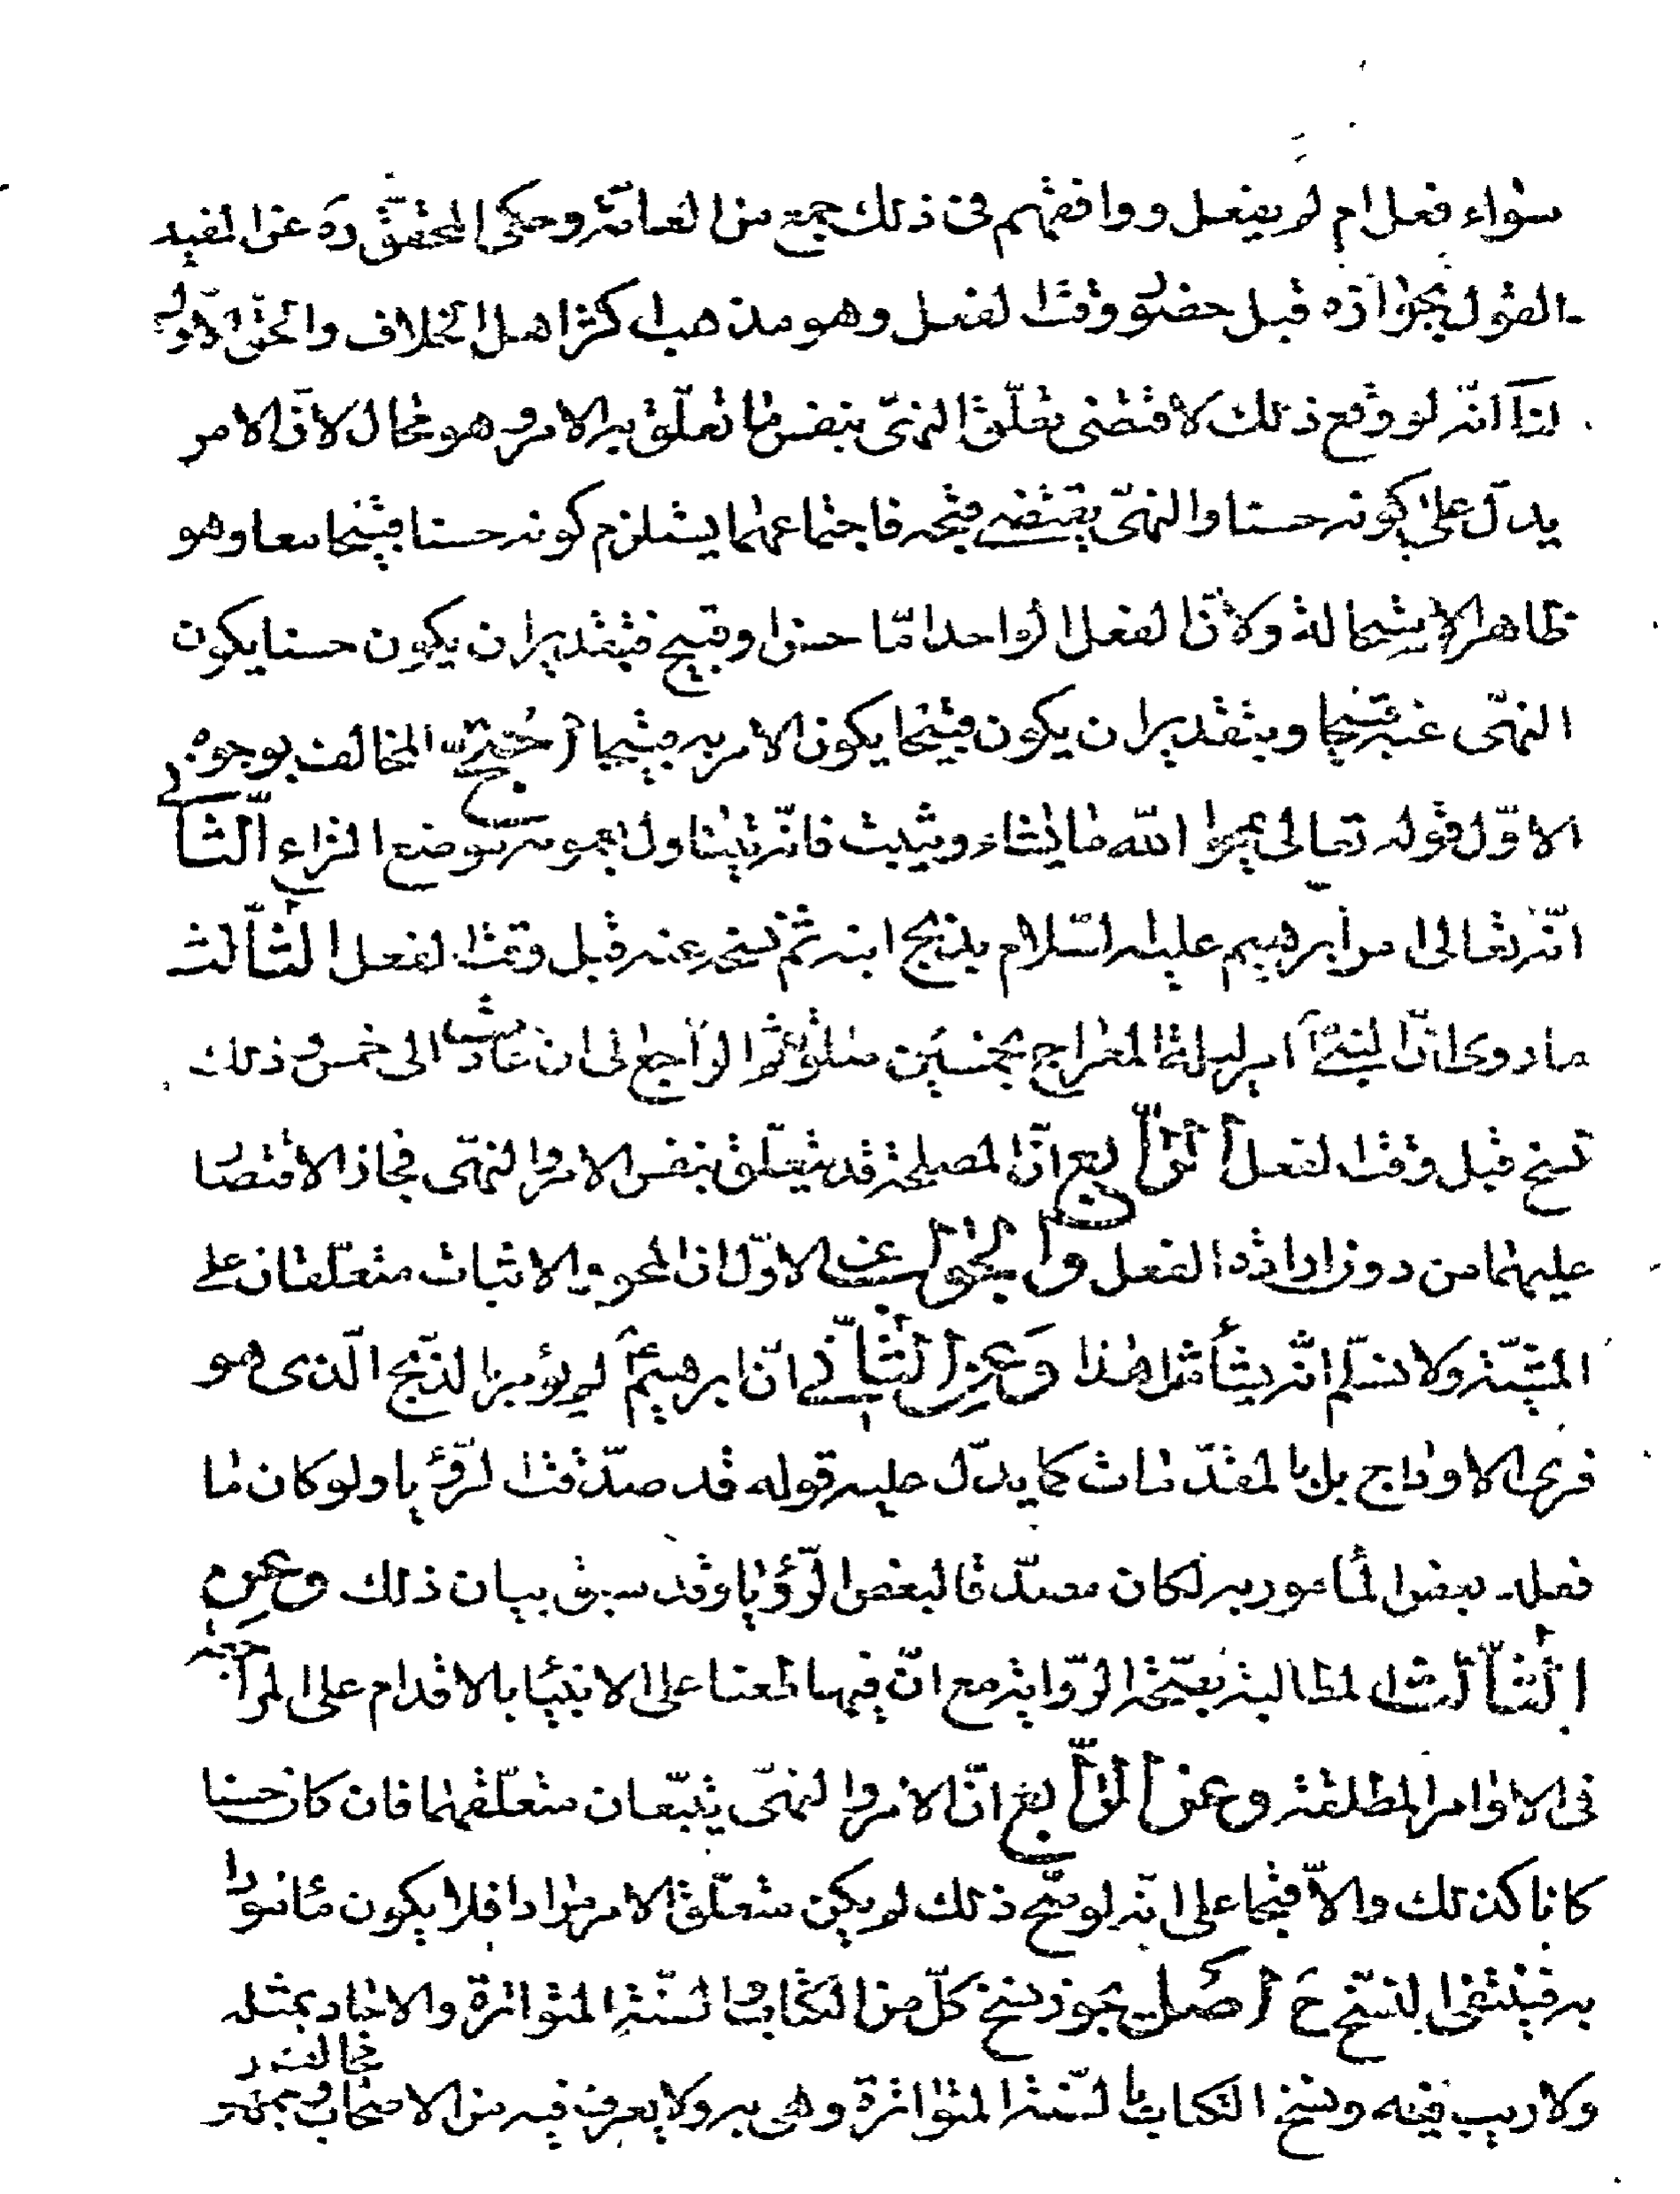 سواء فعل ام لم يفعل ووافقهم فى ذلك جمع من العامّة وحكى المحقق ره عن المفيد
القول بجوازه قبل حضور وقت الفعل وهو مذهب اكثر اهل الخلاف والحق الاول
لنا انّه لو وقع ذلك لاقتضى تعلّق النهى بنفس ما تعلّق به الامر وهو محال لانّ الامر
يدل على كونه حسنا والنهى يقتضى قبحه فاجتماعهما يستلزم كونه حسنا قبيحا معا وهو
ظاهر الاستحالة ولانّ الفعل الواحد امّا حسن او قبيح فبتقدير ان يكون حسنا يكون
النهى عنه قبيحا وبتقدير ان يكون قبيحا يكون الامر به قبيحا احتج المخالف بوجوه
الاوّل قوله تعالى يمحوا الله ما يشاء ويثبت فانّه يتناول بعمومه موضع النزاع الثانى
انّه تعالى امر ابرهيم عليه السّلام بذبح ابنه ثم نسخه عنه قبل وقت الفعل الثالث
ما روى انّ النبىّ امر ليلة المعراج بخمسين صلوة ثم راجع الى ان عادت الى خمس وذلك
نسخ قبل وقت الفعل الرابع انّ المصلحة قد يتعلّق بنفس الامر والنهى فجاز الاقتصار
عليهما من دون ارادة الفعل والجواب عن الاوّل ان المحو والاثبات متعلّقان على
المشيّة ولا نسلّم انّه يشاء مثل هذا وعن الثانى انّ ابرهيم لم يؤمر بالذبح الّذى هو
فرى الاوداج بل بالمقدّمات كما يدلّ عليه قوله قد صدّقت الرّؤيا ولو كان ما
فعله بعض المأمور به لكان مصدّقا لبعض الرّؤيا وقد سبق بيان ذلك وعن
الثالث المطالبة بصحّة الرّواية مع انّ فيها طعنا على الانبياء بالاقدام على المراجعة
فى الاوامر المطلقة وعن الرابع انّ الامر والنهى يتبعان متعلّقهما فان كان حسنا
كانا كذلك والّا قبيحا على انّه لو صحّ ذلك لم يكن متعلّق الامر مرادا فلا يكون مأمورا
به فينتفى النسخ ح اصل يجوز نسخ كلّ من الكتاب والسنّة المتواترة والاحاد بمثله
ولا ريب فيه ونسخ الكتاب بالسّنة المتواترة وهى به ولا يعرف فيه من الاصحاب مخالف وجمهور